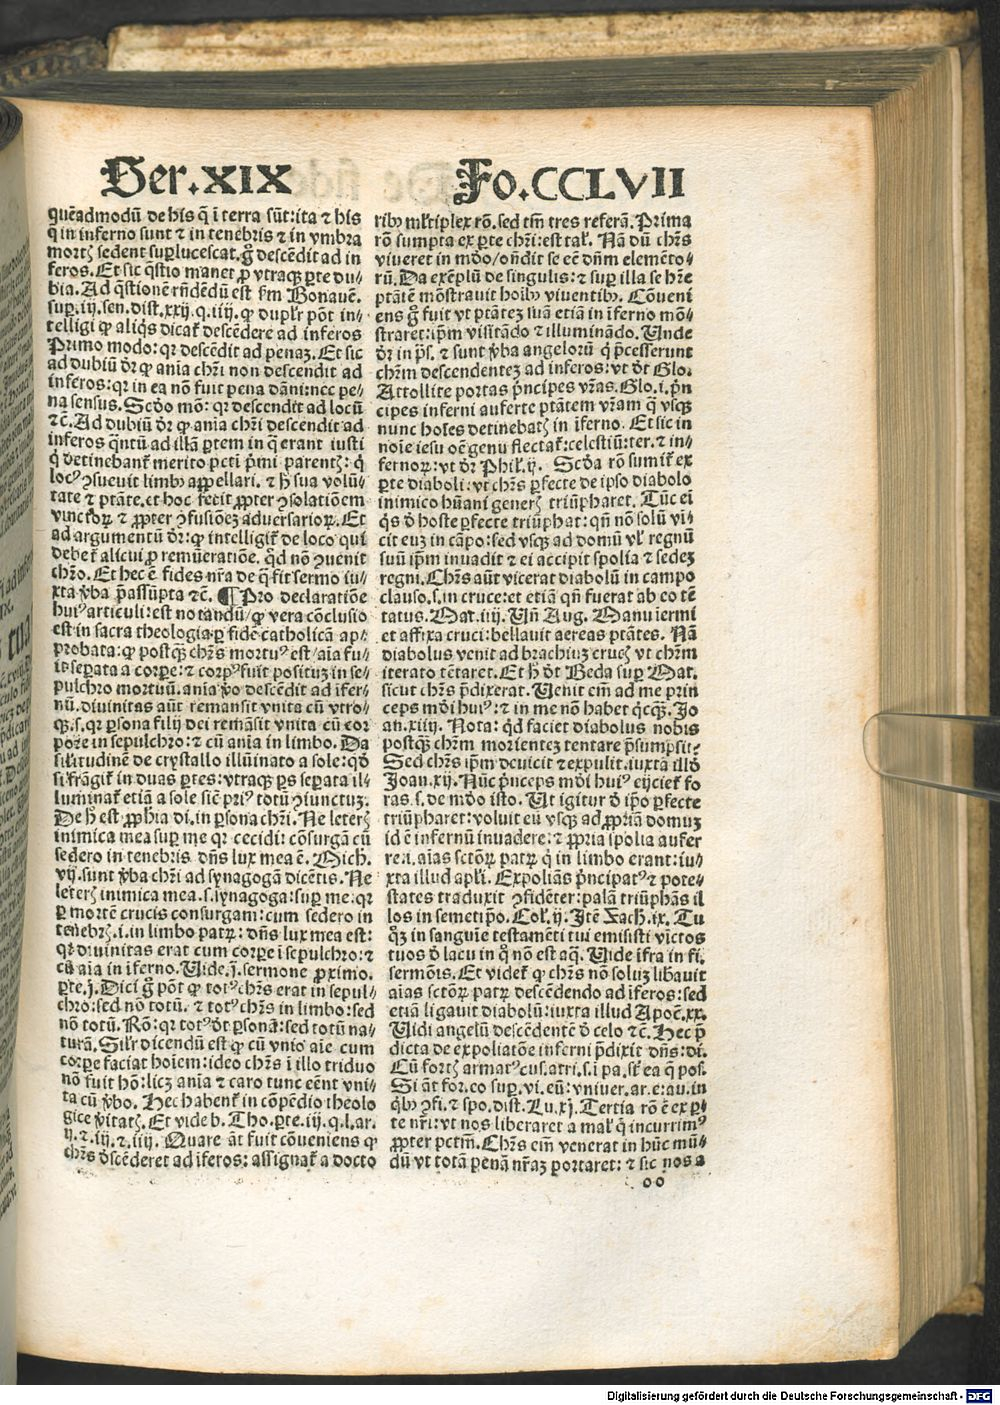 Ser.XIX
Fo.CCLVII
quēadmodū de his q̄ ī terra sūt:ita ⁊ his
q̄ in inferno sunt ⁊ in tenebris ⁊ in vmbra
mortꝫ sedent suꝑlucescat.g̊ descēdit ad in
feros. Et sic q̄stio manet ꝓ vtraqꝫ ꝑte du⸗
bia. Ad q̄stionē rn̄dēdū est ẜm Bonauē.
suꝑ.iij.sen.dist.xxij.q.iiij. ꝙ duplr̄ pōt in⸗
telligi ꝙ aliq̄s dicat᷑ descēdere ad inferos
Primo modo: qꝛ descēdit ad penaꝫ. Et sic
ad dubiū dr̄ ꝙ aīa chr̄i non descendit ad
inferos: qꝛ in ea nō fuit pena dāni: nec pe⸗
na sensus. Scd̄o mō: qꝛ descendit ad locū
⁊c̄. Ad dubiū dr̄ ꝙ aīa chr̄i descendit ad
inferos q̄ntū ad illā ꝑtem in q̄ erant iusti
q̇ detinebant᷑ merito pctī p̄mi parentꝫ: q̇
locꝰ ↄsueuit limbꝰ appellari. ⁊ h̄ sua volū⸗
tate ⁊ ptāte. et hoc fecit ꝓpter ↄsolatiōem
vinctoꝝ ⁊ ꝓpter ↄfusiōeꝫ aduersarioꝝ. Et
ad argumentū dr̄: ꝙ intelligit᷑ de loco qui
debet᷑ alicui ꝓ remūeratiōe. q̇d nō ↄuenit
chr̄o. Et hec ē fides nr̄a de q̄ fit sermo iu⸗
xta v̄ba p̄assūpta ⁊c̄. ¶ Pro declaratiōe
huiꝰ articuli: est notandū/ ꝙ vera cōclusio
est in sacra theologia ꝑ fidē catholicā ap⸗
probata: ꝙ postqꝫ chr̄s mortuꝰ est/ aīa fu⸗
it seꝑata a corꝑe: ⁊ corpꝰ fuit posituꝫ in se⸗
pulchro mortuū. anīa v̄o descēdit ad īfer⸗
nū. diuinitas aūt remansit vnita cū vtro⸗
qꝫ.s. qꝛ ꝑsona filij dei remāsit vnita cū cor
pore in sepulchro: ⁊ cū anīa in limbo. Da
silitudinē de crystallo illūinato a sole: q̇d
si frāgit᷑ in duas ꝑtes: vtraqꝫ ꝑs seꝑata il⸗
luminat᷑ etiā a sole sic̄ priꝰ totū ↄiunctuꝫ.
De h̄ est ꝓphīa di. in ꝑsona chr̄i. Ne leterꝫ
inimica mea suꝑ me qꝛ cecidi: cōsurgā cū
sedero in tenebris dn̄s lux mea ē. Mich.
vij. sunt v̄ba chr̄i ad synagogā dicētis. Ne
leterꝫ inimica mea.s. synagoga: suꝑ me: qꝛ
ꝑ mortē crucis consurgam: cum sedero in
tenebrꝫ.i. in limbo patrꝝ: dn̄s lux mea est:
qꝛ diuinitas erat cum corꝑe ī sepulchro: ⁊
cū aīa in īferno. Uide.j. sermone ꝓximo.
ꝑte.j. Dici g̊ pōt ꝙ totꝰ chr̄s erat in sepul⸗
chro: sed nō totū. ⁊ totꝰ chr̄s in limbo: sed
nō totū. Rō: qꝛ totꝰ dr̄t ꝑsonā: sed totū na⸗
turā. Silr̄ dicendū est ꝙ cū vnio aīe cum
corꝑe faciat hoīem: ideo chr̄s ī illo triduo
nō fuit hō: licꝫ anīa ⁊ caro tunc eēnt vni⸗
ta cū v̄bo. Hec habent᷑ in cōpēdio theolo
gice v̄itatꝫ. Et vide b. Tho. ꝑte.iij. q.l. ar.
ij. ⁊.iij. ⁊.iiij. Quare āt fuit cōueniens ꝙ
chr̄s d̄scēderet ad īferos: assignat᷑ a docto
ribꝰ ml̄tiplex rō. sed tm̄ tres referā. Prima
rō sumpta ex ꝑte chr̄i: est tal̄. Nā dū chr̄s
viueret in mūdo/ on̄dit se eē dn̄m elemēto⸗
rū. Da exēplū de singulis: ⁊ suꝑ illa se hr̄e
ptātē mōstrauit hoībꝰ viuentibꝰ. Cōueni
ens g̊ fuit vt ptāteꝫ suā etiā in īferno mō⸗
straret: ip̄m visitādo ⁊ illuminādo. Unde
dr̄ in p̄s. ⁊ sunt v̄ba angeloꝝ q̇ p̄cesserunt
chr̄m descendenteꝫ ad inferos: vt dt̄ Glo.
Attollite portas p̄ncipes vr̄as. Glo.i. p̄n
cipes inferni auferte ptātem vr̄am q̄ vsqꝫ
nunc hoīes detinebatꝫ in īferno. Et sic in
noīe iesu oē genu flectat᷑: celestiū: ter. ⁊ in⸗
fernoꝝ: vt dr̄ Phil̄.ij. Scd̄a rō sumit᷑ ex
ꝑte diaboli: vt chr̄s ꝑfecte de ipso diabolo
inimico hūani generꝫ triūpharet. Tūc eī
q̇s d̄ hoste ꝑfecte triūphat: qn̄ nō solū vi⸗
cit euꝫ in cāpo: sed vsqꝫ ad domū vl̄ regnū
suū ip̄m inuadit ⁊ ei accipit spolia ⁊ sedeꝫ
regni. Chr̄s aūt vicerat diabolū in campo
clauso.s. in cruce: et etiā qn̄ fuerat ab eo tē
tatus. Mat.iiij. Un̄ Aug. Manu inermi
et affixa cruci: bellauit aereas ptātes. Nā
diabolus venit ad brachiuꝫ crucꝫ vt chr̄m
iterato tētaret. Et h̄ dt̄ Beda suꝑ Mat.
sicut chr̄s p̄dixerat. Uenit em̄ ad me prin
ceps mūdi huiꝰ: ⁊ in me nō habet q̇cqꝫ. Jo
an.xiiij. Nota: q̇d faciet diabolus nobis
postqꝫ chr̄m morienteꝫ tentare p̄sumpsit?
Sed chr̄s ip̄m deuicit ⁊ expulit. iuxta illd̄
Joan.xij. Nūc p̄nceps mūdi huiꝰ eijciet᷑ fo
ras.s. de mūdo isto. Ut igitur d̄ ip̄o ꝑfecte
triūpharet: voluit eū vsqꝫ ad ꝓpriā domuꝫ
id ē infernū inuadere: ⁊ ꝓpria spolia aufer
re.i. aīas sctōꝝ patrꝝ q̇ in limbo erant: iu⸗
xta illud apl̄i. Expoliās p̄ncipatꝰ ⁊ pote⸗
states traduxit ↄfidēter: palā triūphās il
los in semetip̄o. Col̄.ij. Jtē Zach.ix. Tu
q̇ꝫ in sanguīe testamēti tui emisisti victos
tuos d̄ lacu in q̊ nō est aq̄. Uide īfra in fi.
sermōis. Et videt᷑ ꝙ chr̄s nō soluꝫ lib̄auit
aīas sctōꝝ patrꝝ descēdendo ad īferos: sed
etiā ligauit diabolū: iuxta illud Apoc̄.xx.
Uidi angelū descēdentē d̄ celo ⁊c̄. Hec p̄
dicta de expoliatōe inferni p̄dixit dn̄s: di.
Cū fortꝫ armatꝰ cus. atri.s. i pa. sr̄t ea q̄ pos.
Si āt for. co suꝑ. vi. eū: vniuer. ar. e: au. in
q̇bꝰ ↄfi. ⁊ spo. dist. Lu.xj. Tertia rō ē ex ꝑ⸗
te nr̄i: vt nos liberaret a mal̄ q̄ incurrimꝰ
ꝓpter pctm̄. Chr̄s em̄ venerat in hūc mū⸗
dū vt totā penā nr̄aꝫ portaret: ⁊ sic nos a
oo
Digitalisierung gefördert durch die Deutsche Forschungsgemeinschaft - DFG